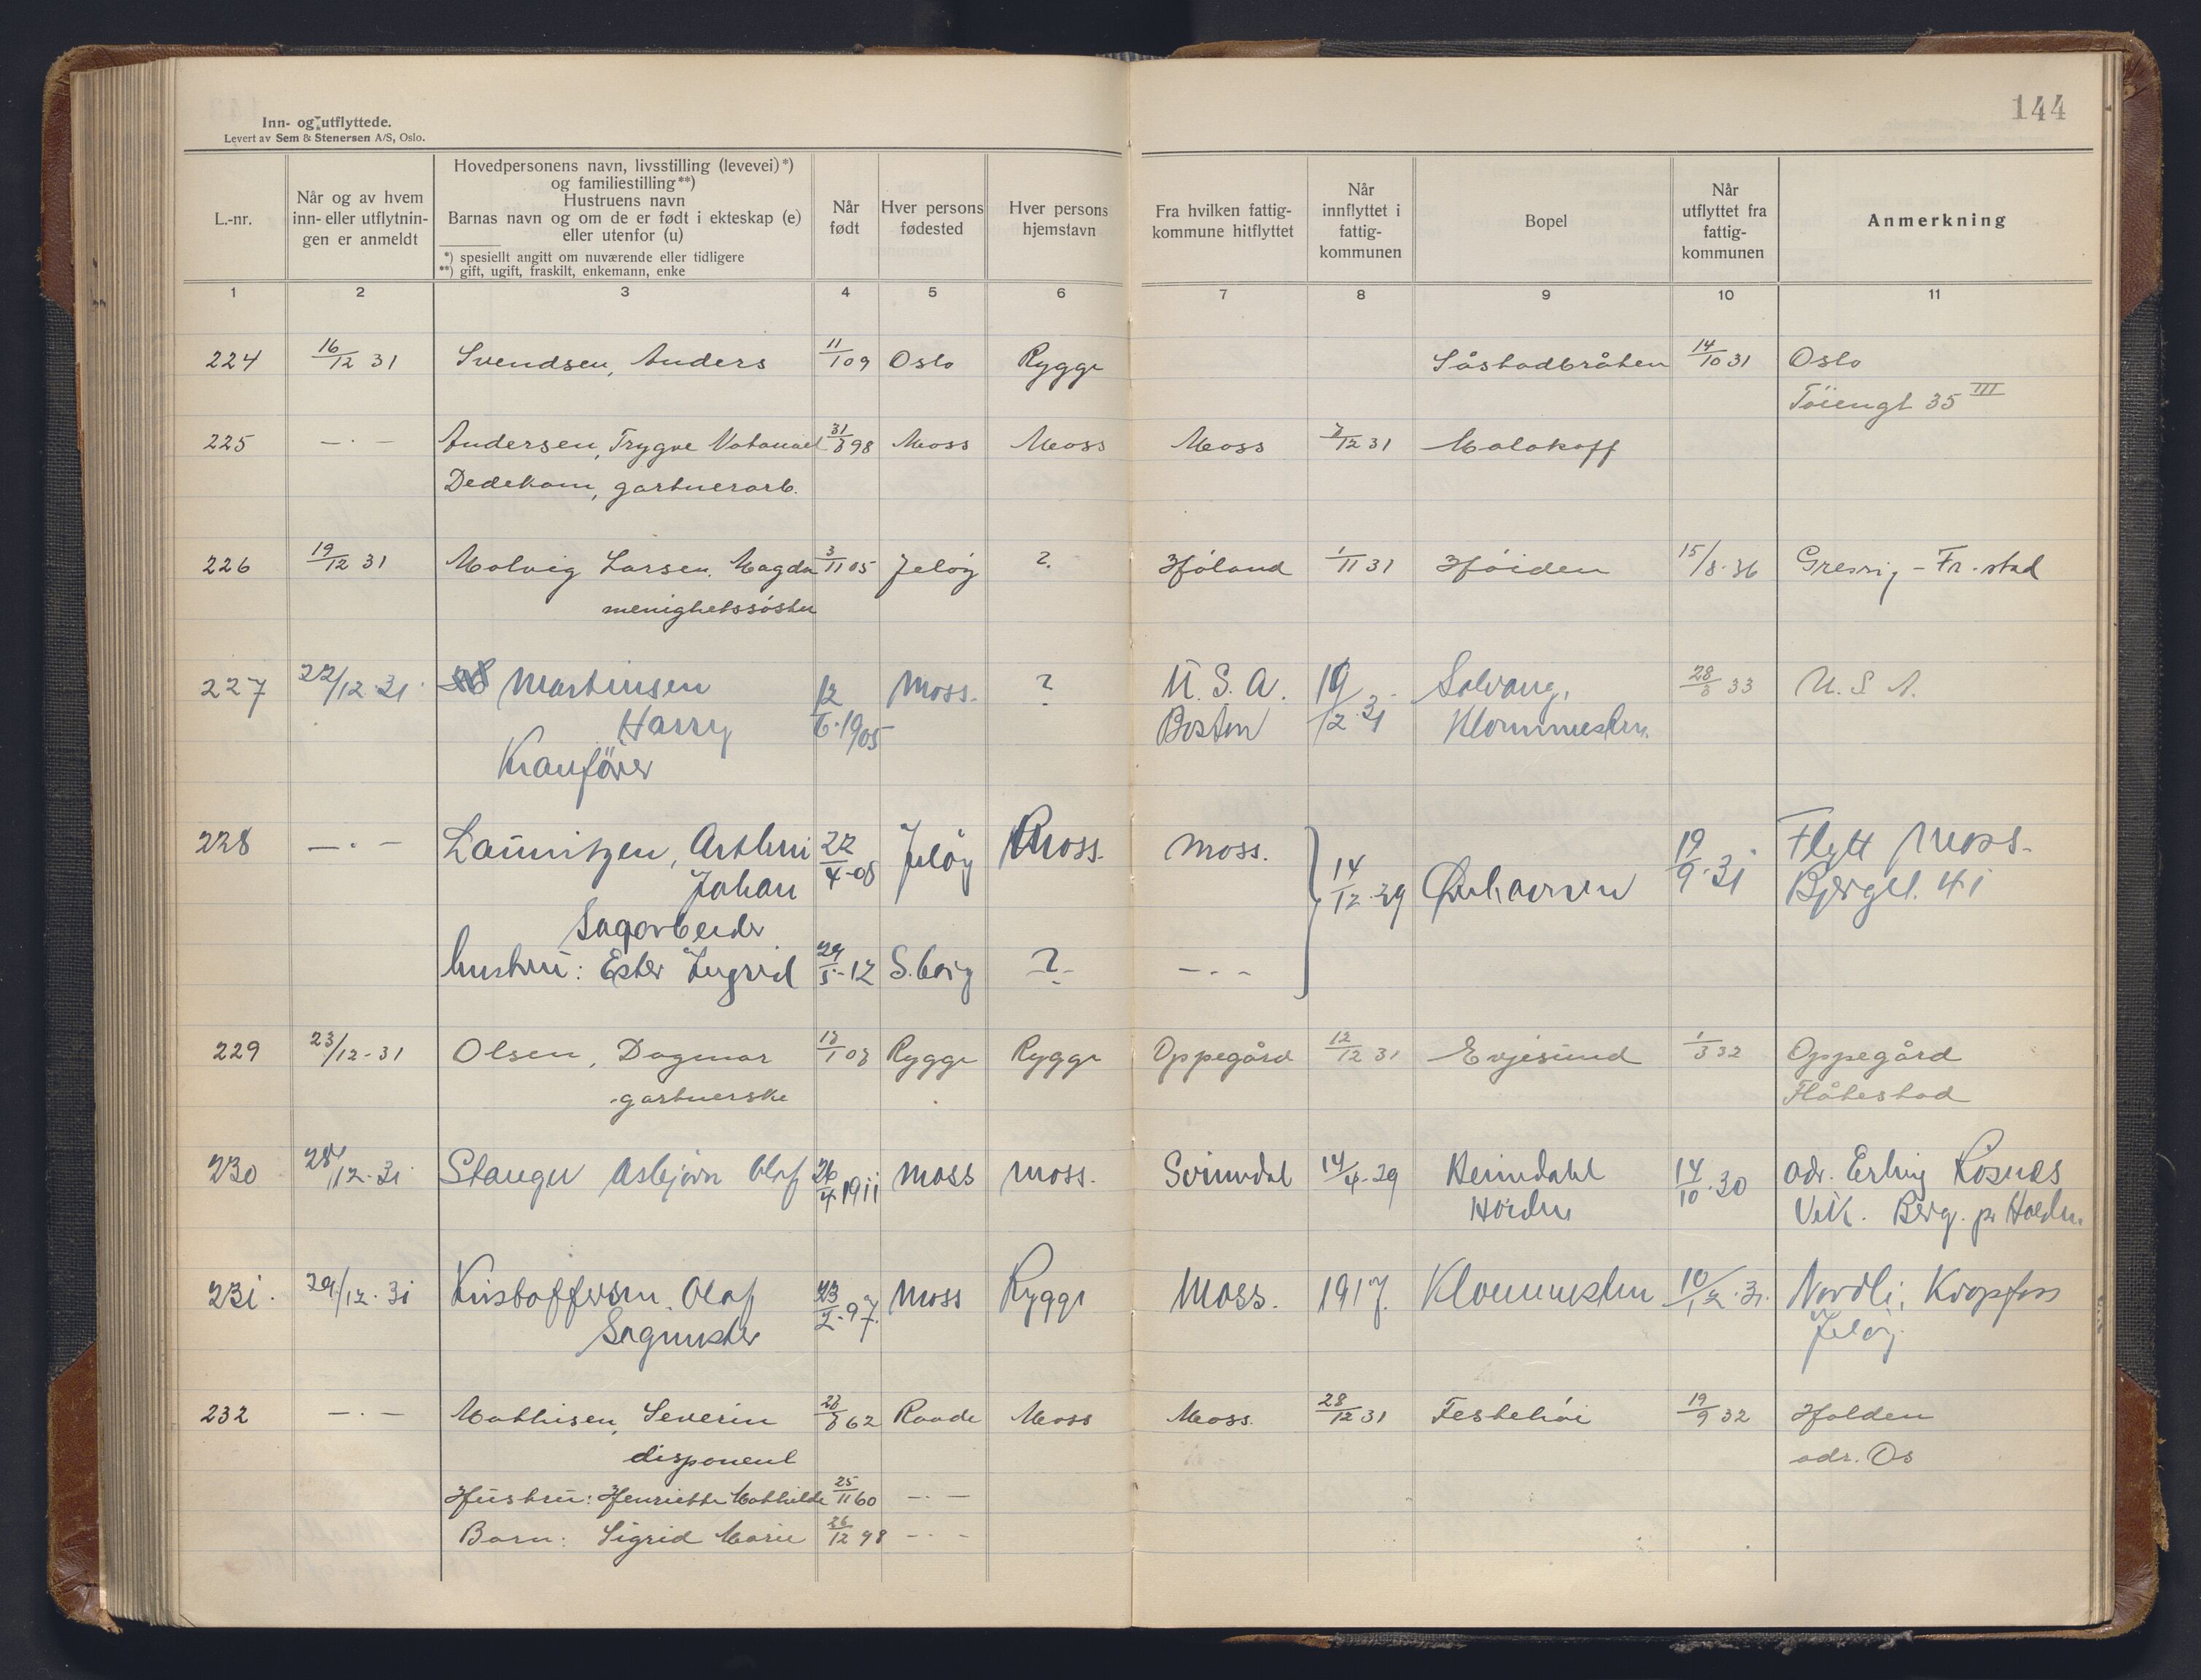 144
Inn- og utflyttede.
Levert av Sem & Stenersen A/S, Oslo.
L.-nr.
Når og av hvem
inn- eller utflytnin-
gen er anmeldt
Hovedpersonens navn, livsstilling (levevei)*)
og familiestilling**)
Hustruens navn
Barnas navn og om de er født i ekteskap (e)
eller utenfor (u)
*) spesiellt angitt om nuværende eller tidligere
**) gift, ugift, fraskilt, enkemann, enke
Når
født
Hver persons
fødested
Hver persons
hjemstavn
Fra hvilken fattig-
kommune hitflyttet
Når
innflyttet i
fattig-
kommunen
Bopel
Når
utflyttet fra
fattig-
kommunen
Anmerkning
1 2 3 4 5 6 7 8 9 10 11
224 16/12 31 Svendsen, Anders 11/1 09 Oslo Rygge Såstadbråten 14/10 31 Oslo
Töiengt 35 III
225 — · — Andersen, Trygve Natanael 31/8 98 Moss Moss Moss 7/12 31 Malakoff
Dedekam, gartnerarb.
226 19/12 31 Malvig Larsen, Magda 3/11 05 Jelöy ? Höland 1/11 31 Höiden 15/8-36 Gressvig - Fr.stad
menighetssöster
227 22/12 31 Martinsen 12/6 1905 Moss. ? U.S.A. 19/12 31 Solvang, 28/3 33 U.S.A.
Harry Boston Klommesten.
Kranförer
228 — · — Lauritzen, Arthur 22/4-08 Jelöy Moss. Moss. 14/12 29 19/9-31 Flytt Moss.
Johan Bjergt. 41
Sagarbeider
hustru: Ester Ingrid 29/5-12 S.borg ? — · —
229 23/12-31 Olsen, Dagmar 18/1 08 Rygge Rygge Oppegård 12/12 31 Evjesund 1/3 32 Oppegård
gartnerske Flåtestad
230 28/12-31 Stanger Asbjørn Olaf 26/4 1911 Moss Moss. Svinndal 14/4-29 14/10-30 adr. Erling Rosnes
Höiden Vik. Berg. pr Halden.
231. 29/12-31 Kristoffersen, Olaf 23/2-97 Moss Rygge Moss. 1917. Klommesten 10/12-31. Nordli, Kropfoss
Sagmester Jeløy
232 — · — Mathisen, Severin 28/8 62 Raade Moss Moss. 28/12 31 Festehöi 19/9 32 Halden
disponent adr. Os
Hustru: Henriette Mathilde 25/11 60 — · —
Barn: Sigrid Marie 26/12 98 — · —